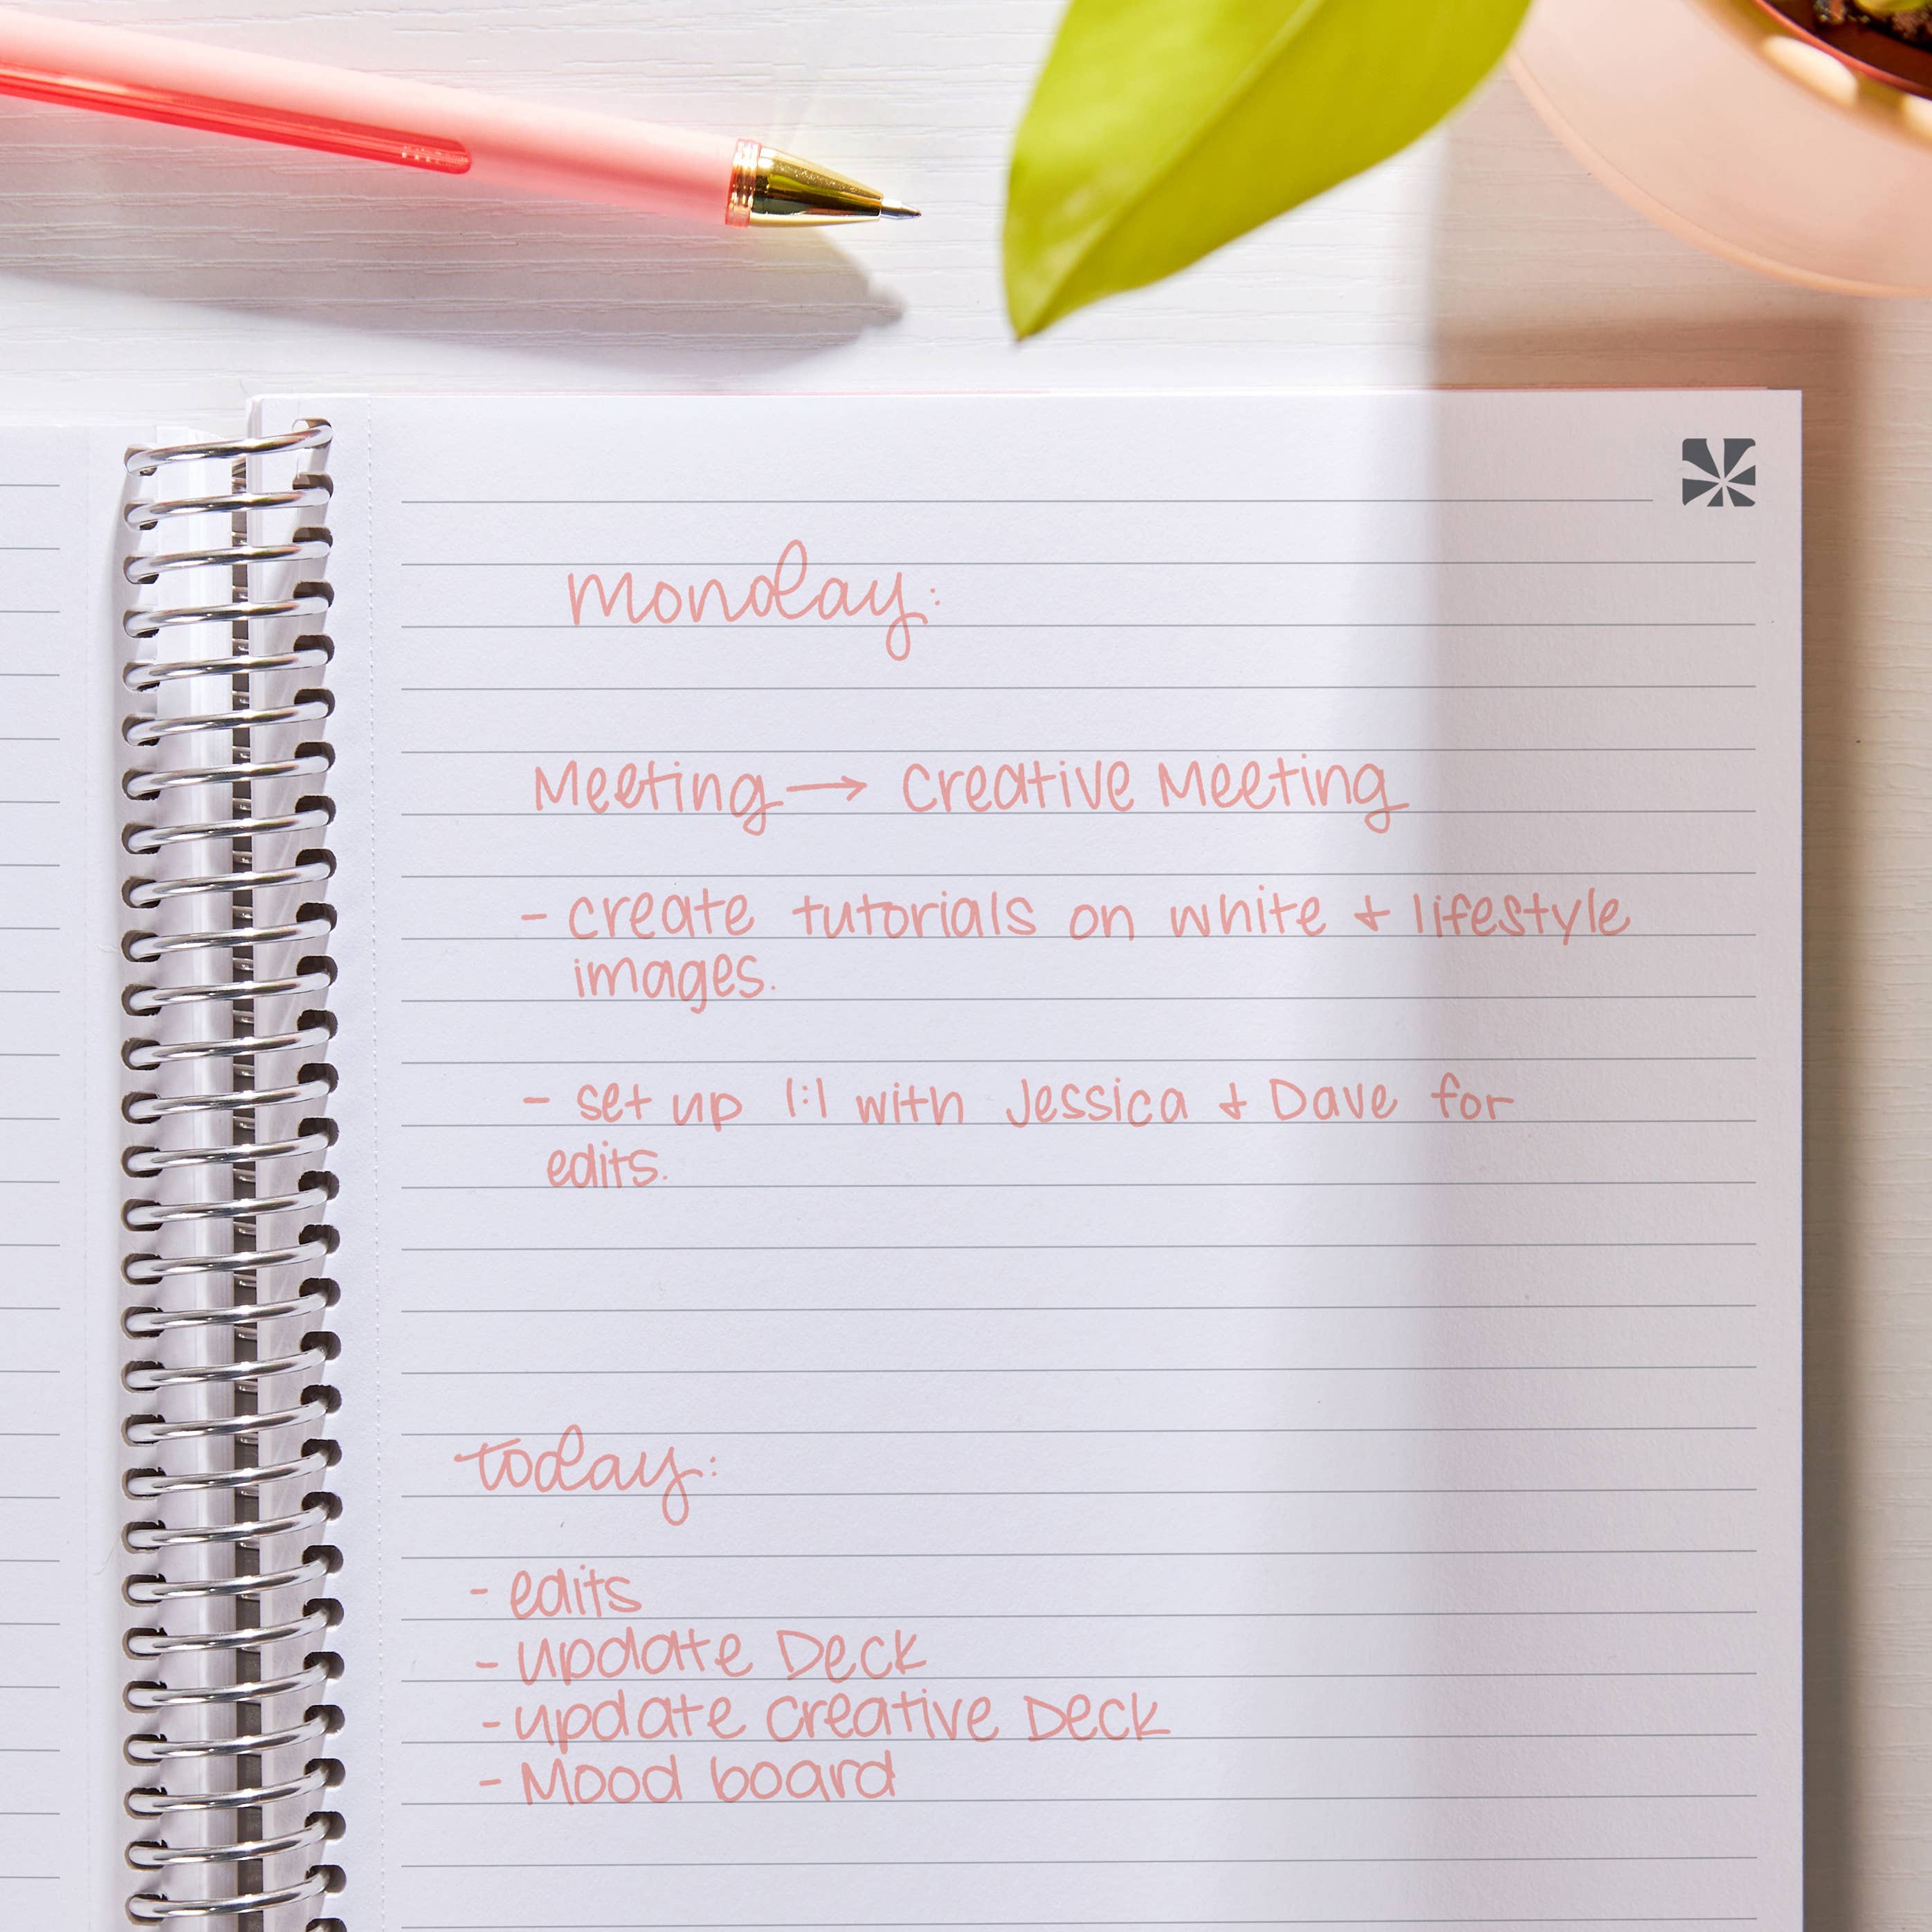 monday:
Meeting → Creative Meeting
- create tutorials on white & lifestyle
images.
- set up 1:1 with Jessica & Dave for
edits.
today:
- edits
- update Deck
- update Creative Deck
- Mood board